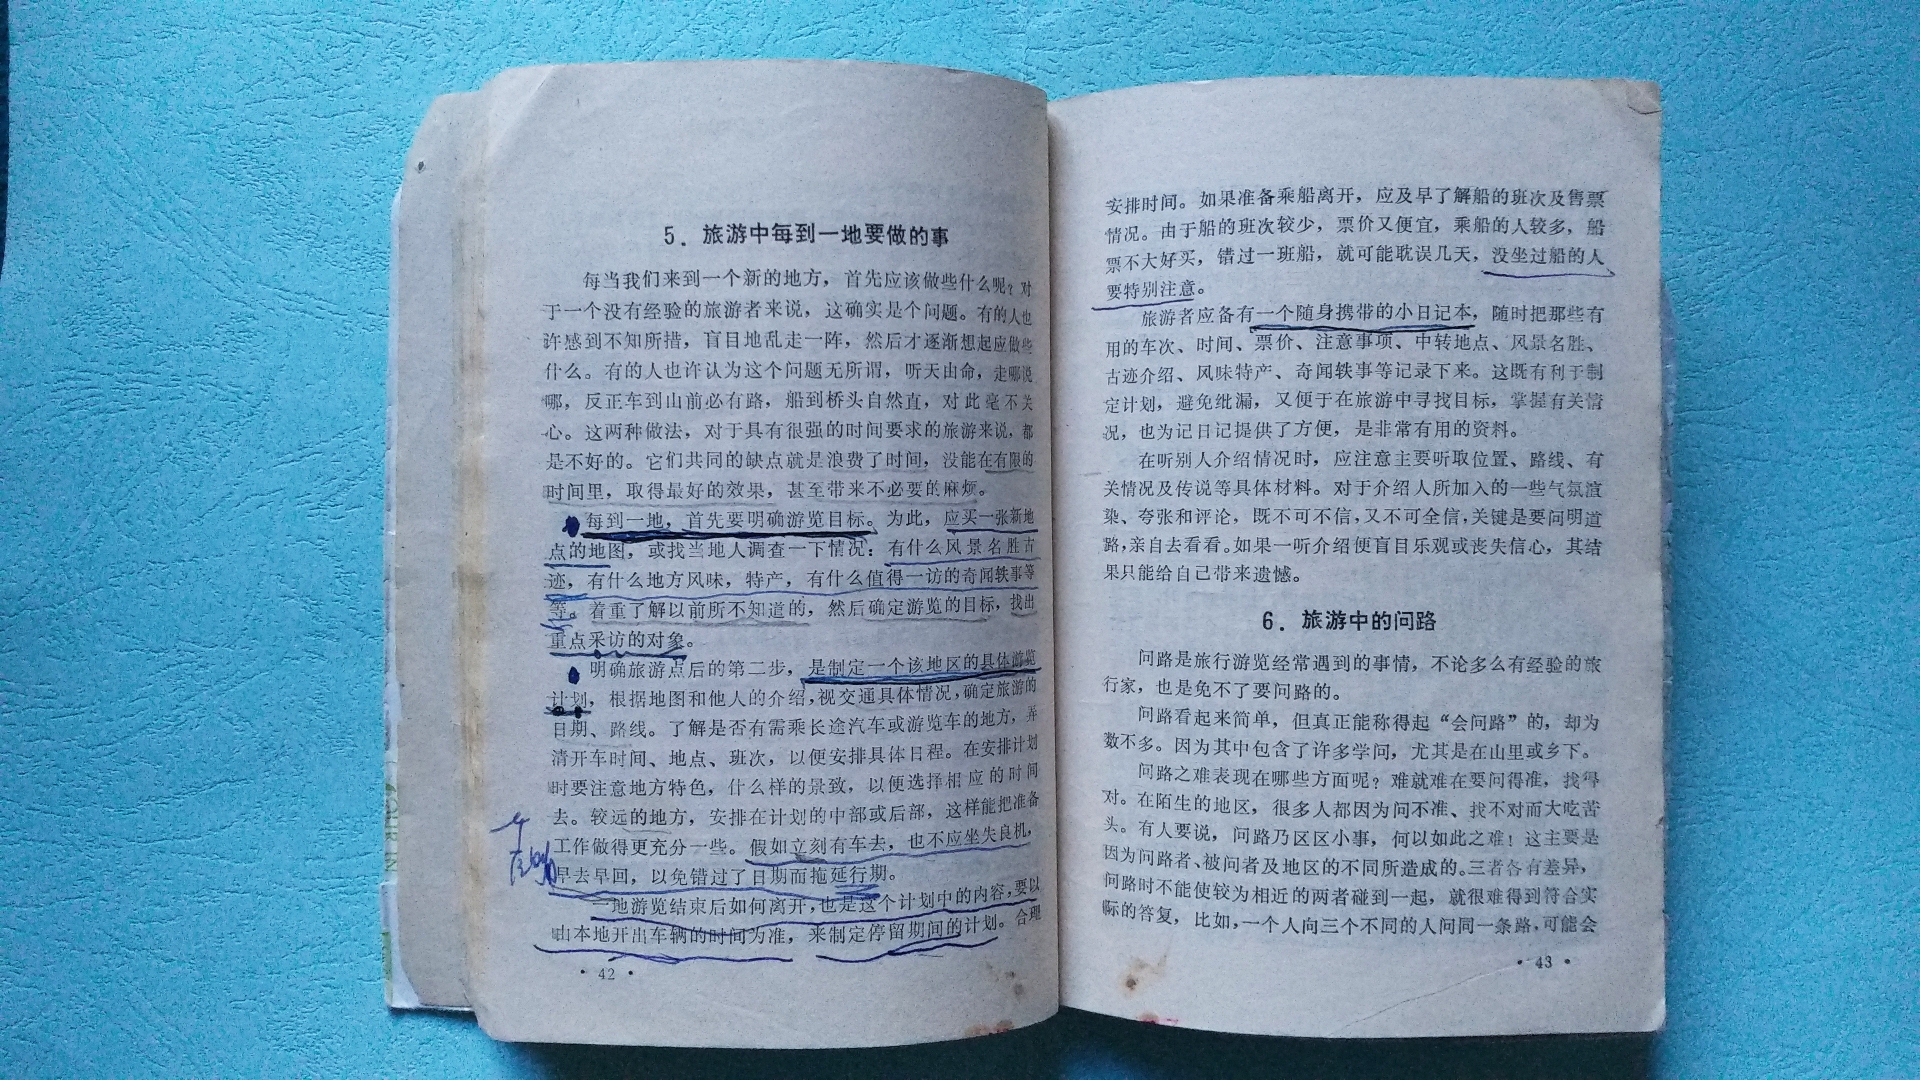 5．旅游中每到一地要做的事
每当我们来到一个新的地方，首先应该做些什么呢？对
于一个没有经验的旅游者来说，这确实是个问题。有的人也
许感到不知所措，盲目地乱走一阵，然后才逐渐想起应做些
什么。有的人也许认为这个问题无所谓，听天由命，走哪说
哪，反正车到山前必有路，船到桥头自然直，对此毫不关
心。这两种做法，对于具有很强的时间要求的旅游来说，都
是不好的。它们共同的缺点就是浪费了时间，没能在有限的
时间里，取得最好的效果，甚至带来不必要的麻烦。
每到一地，首先要明确游览目标。为此，应买一张新地
点的地图，或找当地人调查一下情况：有什么风景名胜古
迹，有什么地方风味，特产，有什么值得一访的奇闻轶事等
等。着重了解以前所不知道的，然后确定游览的目标，找出
重点采访的对象。
明确旅游点后的第二步，是制定一个该地区的具体游览
计划，根据地图和他人的介绍，视交通具体情况，确定旅游的
日期、路线。了解是否有需乘长途汽车或游览车的地方，弄
清开车时间、地点、班次，以便安排具体日程。在安排计划
时要注意地方特色，什么样的景致，以便选择相应的时间
去。较远的地方，安排在计划的中部或后部，这样能把准备
工作做得更充分一些。假如立刻有车去，也不应坐失良机，
早去早回，以免错过了日期而拖延行期。
一地游览结束后如何离开，也是这个计划中的内容，要以
由本地开出车辆的时间为准，来制定停留期间的计划。合理
• 42 •
安排时间。如果准备乘船离开，应及早了解船的班次及售票
情况。由于船的班次较少，票价又便宜，乘船的人较多，船
票不大好买，错过一班船，就可能耽误几天，没坐过船的人
要特别注意。
旅游者应备有一个随身携带的小日记本，随时把那些有
用的车次、时间、票价、注意事项、中转地点、风景名胜、
古迹介绍、风味特产、奇闻轶事等记录下来。这既有利于制
定计划，避免纰漏，又便于在旅游中寻找目标，掌握有关情
况，也为记日记提供了方便，是非常有用的资料。
在听别人介绍情况时，应注意主要听取位置、路线、有
关情况及传说等具体材料。对于介绍人所加入的一些气氛渲
染、夸张和评论，既不可不信，又不可全信，关键是要问明道
路，亲自去看看。如果一听介绍便盲目乐观或丧失信心，其结
果只能给自己带来遗憾。
6．旅游中的问路
问路是旅行游览经常遇到的事情，不论多么有经验的旅
行家，也是免不了要问路的。
问路看起来简单，但真正能称得起“会问路”的，却为
数不多。因为其中包含了许多学问，尤其是在山里或乡下。
问路之难表现在哪些方面呢？难就难在要问得准，找得
对。在陌生的地区，很多人都因为问不准、找不对而大吃苦
头。有人要说，问路乃区区小事，何以如此之难！这主要是
因为问路者、被问者及地区的不同所造成的。三者各有差异，
问路时不能使较为相近的两者碰到一起，就很难得到符合实
际的答复，比如，一个人向三个不同的人问同一条路，可能会
• 43 •